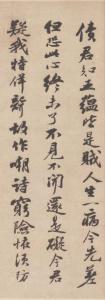 債君知五蘊皆是賊人生一病今先差
但恐此心終未了不見不聞還是礙今君
疑我特佯聾故作嘲詩窮險怪須防